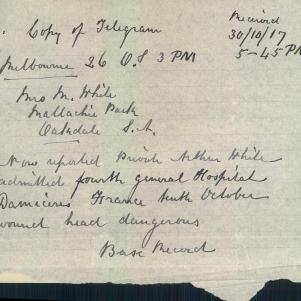 Copy of Telegram
Received
30/10/17
5-45 PM
Melbourne 26 O.S 3 PM
Mrs M. White
Mallachie Park
Oakdale S.A.
Now reported Private Arthur White
admitted fourth general Hospital
Damaceres France tenth October
wound head dangerous
Base Record